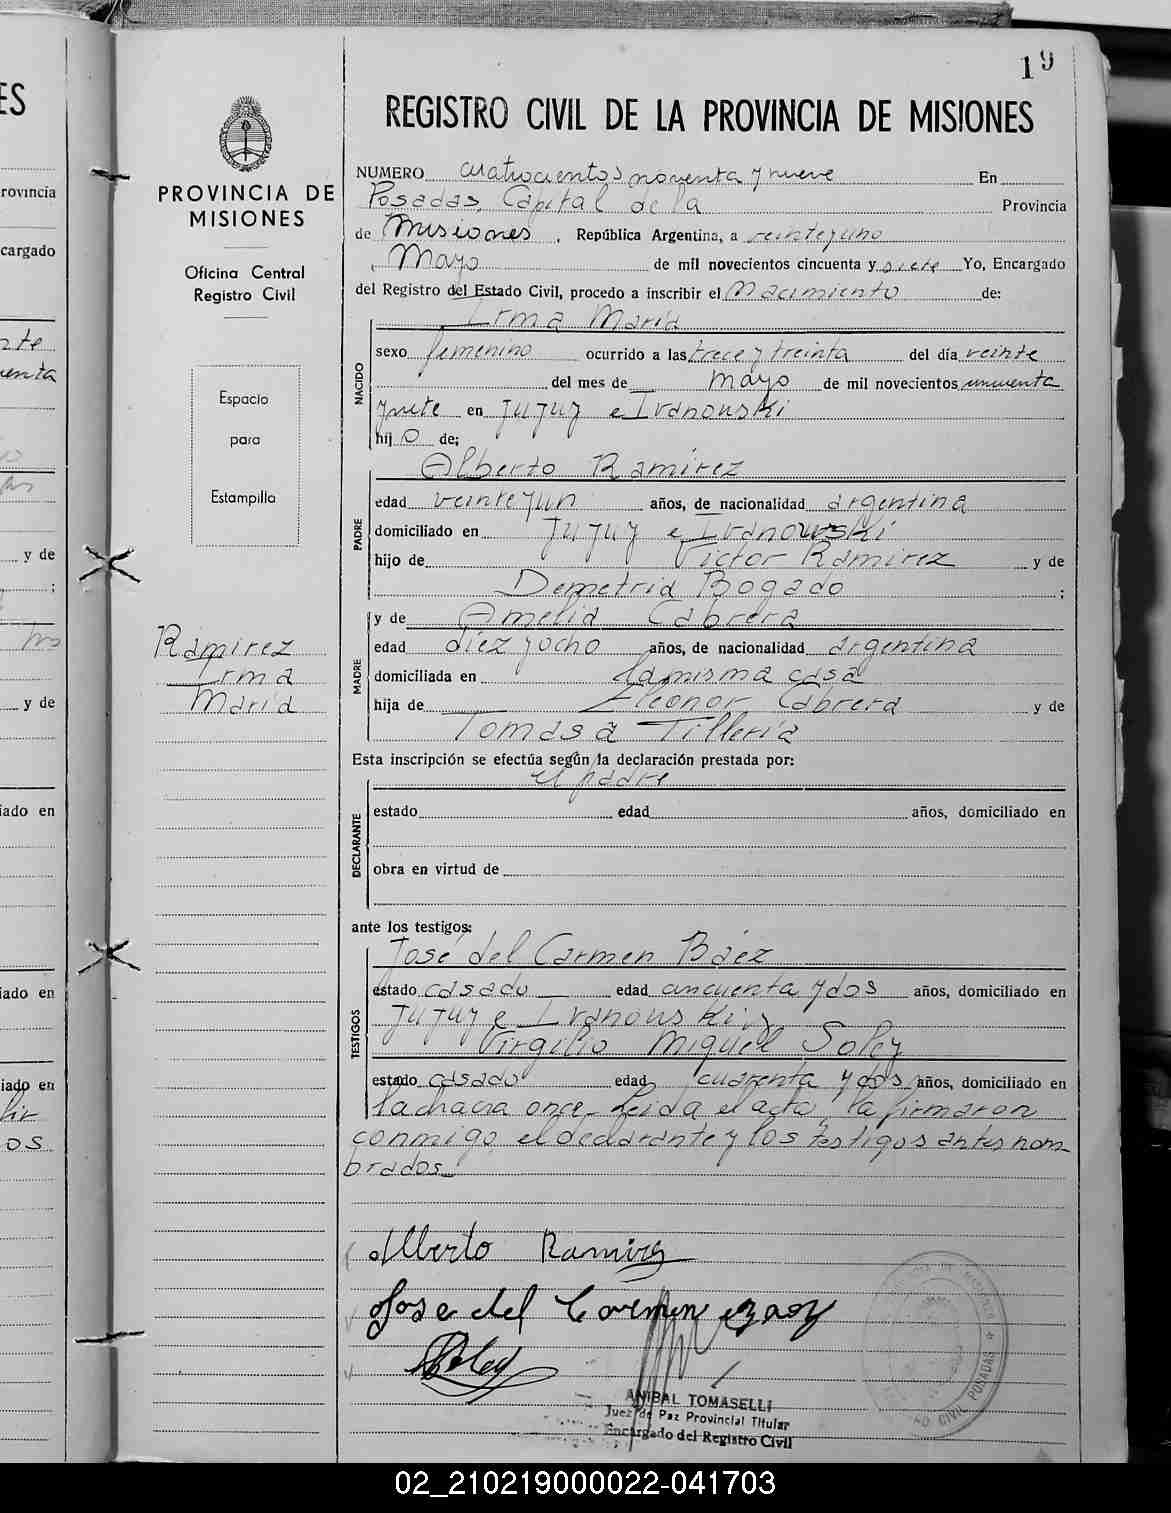 19
REGISTRO CIVIL DE LA PROVINCIA DE MISIONES
PROVINCIA DE
MISIONES
Oficina Central
Registro Civil
Espacio
para
Estampilla
Ramirez
Irma
Maria
NUMERO cuatrocientos noventa y nueve En
Posadas, Capital de la Provincia
de Misiones, República Argentina, a veinteyuno
, Mayo de mil novecientos cincuenta y siete Yo, Encargado
del Registro del Estado Civil, procedo a inscribir el Nacimiento de:
Irma Maria
NACIDO
sexo femenino ocurrido a las trece y treinta del día veinte
del mes de mayo de mil novecientos cincuenta
y siete en Jujuy e Ivanouski
hijo de;
Alberto Ramirez
PADRE
edad veinteyun años, de nacionalidad argentina
domiciliado en Jujuy e Ivanowski
hijo de Victor Ramirez y de
Demetria Bogado ;
y de Amelia Cabrera
MADRE
edad diez yocho años, de nacionalidad argentina
domiciliada en la misma casa
hija de Eleonor Cabrera y de
Tomasa Tilleria
Esta inscripción se efectúa según la declaración prestada por:
el padre
DECLARANTE
estado edad años, domiciliado en
obra en virtud de
ante los testigos:
José del Carmen Báez
TESTIGOS
estado casado edad cincuenta ydos años, domiciliado en
Jujuy e Ivanouski y
Virgilio Miguel Soley
estado casado edad cuarenta y dos años, domiciliado en
la chacra once. Leida el acta, la firmaron
conmigo el declarante y los testigos antes nom
brados
Alberto Ramirez
Jose del Carmen
Soley
ANIBAL TOMASELLI
Juez de Paz Provincial Titular
Encargado del Registro Civil
CIVIL POSADAS
ES
rovincia
cargado
y de
y de
iado en
iado en
iado en
os
02_210219000022-041703